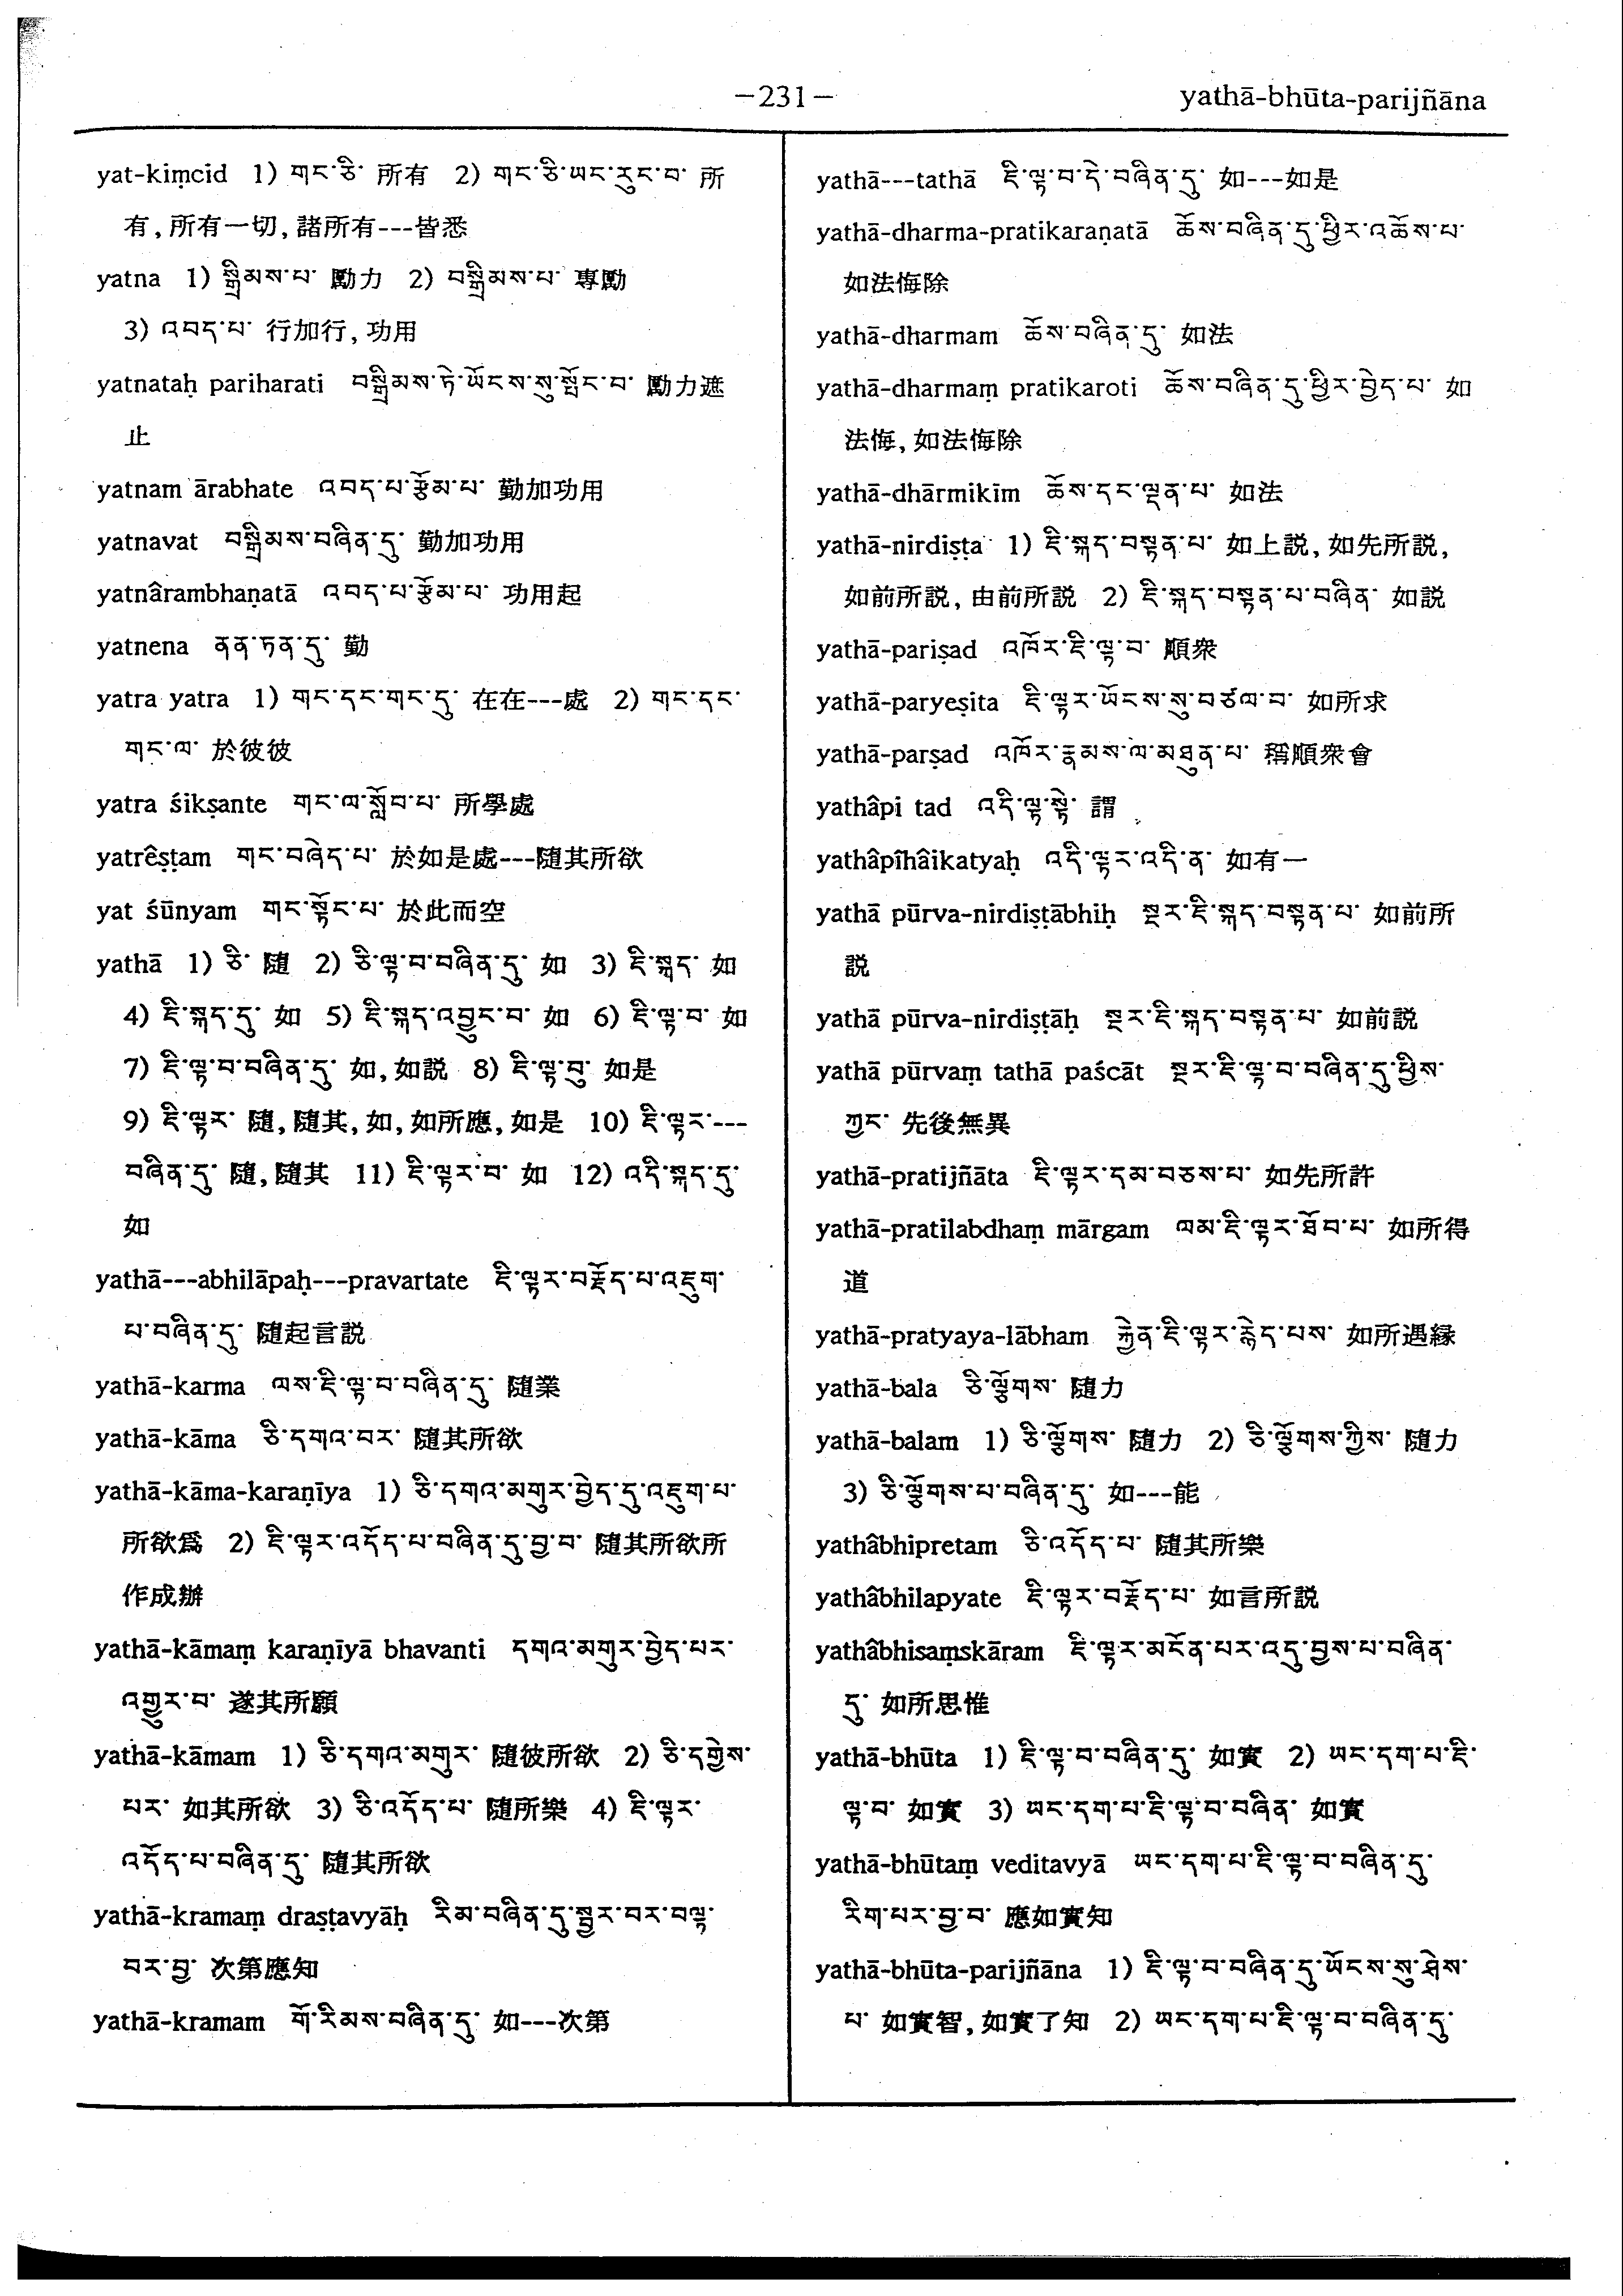 −231−
yathā-bhūta-parijñāna
yat-kiṃcid 1) གང་ཅི་ 所有 2) གང་ཅི་ཡང་རུང་བ་ 所
有, 所有一切, 諸所有---皆悉
yatna 1) སྒྲིམས་པ་ 勵力 2) བསྒྲིམས་པ་ 專勵
3) འབད་པ་ 行加行, 功用
yatnataḥ pariharati བསྒྲིམས་ཏེ་ཡོངས་སུ་སྤོང་བ་ 勵力遮
止
yatnam ārabhate འབད་པ་རྩོམ་པ་ 勤加功用
yatnavat བསྒྲིམས་བཞིན་དུ་ 勤加功用
yatnârambhaṇatā འབད་པ་རྩོམ་པ་ 功用起
yatnena ནན་ཏན་དུ་ 勤
yatra yatra 1) གང་དང་གང་དུ་ 在在---處 2) གང་དང་
གང་ལ་ 於彼彼
yatra śikṣante གང་ལ་སློབ་པ་ 所學處
yatrêṣṭam གང་བཞེད་པ་ 於如是處---隨其所欲
yat śūnyam གང་སྟོང་པ་ 於此而空
yathā 1) ཅི་ 隨 2) ཅི་ལྟ་བ་བཞིན་དུ་ 如 3) ཇི་སྐད་ 如
4) ཇི་སྐད་དུ་ 如 5) ཇི་སྐད་འབྱུང་བ་ 如 6) ཇི་ལྟ་བ་ 如
7) ཇི་ལྟ་བ་བཞིན་དུ་ 如, 如説 8) ཇི་ལྟ་བུ་ 如是
9) ཇི་ལྟར་ 隨, 隨其, 如, 如所應, 如是 10) ཇི་ལྟར་---
བཞིན་དུ་ 隨, 隨其 11) ཇི་ལྟར་བ་ 如 12) འདི་སྐད་དུ་
如
yathā---abhilāpaḥ---pravartate ཇི་ལྟར་བརྗོད་པ་འཇུག་
པ་བཞིན་དུ་ 隨起言説
yathā-karma ལས་ཇི་ལྟ་བ་བཞིན་དུ་ 隨業
yathā-kāma ཅི་དགའ་བར་ 隨其所欲
yathā-kāma-karaṇīya 1) ཅི་དགའ་མགུར་བྱེད་དུ་འཇུག་པ་
所欲爲 2) ཇི་ལྟར་འདོད་པ་བཞིན་དུ་བྱ་བ་ 隨其所欲所
作成辦
yathā-kāmaṃ karaṇīyā bhavanti དགའ་མགུར་བྱེད་པར་
འགྱུར་བ་ 遂其所願
yathā-kāmam 1) ཅི་དགའ་མགུར་ 隨彼所欲 2) ཅི་དགྱེས་
པར་ 如其所欲 3) ཅི་འདོད་པ་ 隨所樂 4) ཇི་ལྟར་
འདོད་པ་བཞིན་དུ་ 隨其所欲
yathā-kramaṃ draṣṭavyāḥ རིམ་བཞིན་དུ་སྦྱར་བར་བལྟ་
བར་བྱ་ 次第應知
yathā-kramam གོ་རིམས་བཞིན་དུ་ 如---次第
yathā---tathā ཇི་ལྟ་བ་དེ་བཞིན་དུ་ 如---如是
yathā-dharma-pratikaraṇatā ཆོས་བཞིན་དུ་ཕྱིར་འཆོས་པ་
如法悔除
yathā-dharmam ཆོས་བཞིན་དུ་ 如法
yathā-dharmaṃ pratikaroti ཆོས་བཞིན་དུ་ཕྱིར་བྱེད་པ་ 如
法悔, 如法悔除
yathā-dhārmikīm ཆོས་དང་ལྡན་པ་ 如法
yathā-nirdiṣṭa 1) ཇི་སྐད་བསྟན་པ་ 如上説, 如先所説,
如前所説, 由前所説 2) ཇི་སྐད་བསྟན་པ་བཞིན་ 如説
yathā-pariṣad འཁོར་ཇི་ལྟ་བ་ 順衆
yathā-paryeṣita ཇི་ལྟར་ཡོངས་སུ་བཙལ་བ་ 如所求
yathā-parṣad འཁོར་རྣམས་ལ་མཐུན་པ་ 稱順衆會
yathâpi tad འདི་ལྟ་སྟེ་ 謂
yathâpîhâikatyaḥ འདི་ལྟར་འདི་ན་ 如有一
yathā pūrva-nirdiṣṭābhiḥ སྔར་ཇི་སྐད་བསྟན་པ་ 如前所
説
yathā pūrva-nirdiṣṭāḥ སྔར་ཇི་སྐད་བསྟན་པ་ 如前説
yathā pūrvaṃ tathā paścāt སྔར་ཇི་ལྟ་བ་བཞིན་དུ་ཕྱིས་
ཀྱང་ 先後無異
yathā-pratijñāta ཇི་ལྟར་དམ་བཅས་པ་ 如先所許
yathā-pratilabdhaṃ mārgam ལམ་ཇི་ལྟར་ཐོབ་པ་ 如所得
道
yathā-pratyaya-lābham རྐྱེན་ཇི་ལྟར་རྙེད་པས་ 如所遇縁
yathā-bala ཅི་ལྕོགས་ 隨力
yathā-balam 1) ཅི་ལྕོགས་ 隨力 2) ཅི་ལྕོགས་ཀྱིས་ 隨力
3) ཅི་ལྕོགས་པ་བཞིན་དུ་ 如---能
yathâbhipretam ཅི་འདོད་པ་ 隨其所樂
yathâbhilapyate ཇི་ལྟར་བརྗོད་པ་ 如言所説
yathâbhisaṃskāram ཇི་ལྟར་མངོན་པར་འདུ་བྱས་པ་བཞིན་
དུ་ 如所思惟
yathā-bhūta 1) ཇི་ལྟ་བ་བཞིན་དུ་ 如實 2) ཡང་དག་པ་ཇི་
ལྟ་བ་ 如實 3) ཡང་དག་པ་ཇི་ལྟ་བ་བཞིན་ 如實
yathā-bhūtaṃ veditavyā ཡང་དག་པ་ཇི་ལྟ་བ་བཞིན་དུ་
རིག་པར་བྱ་བ་ 應如實知
yathā-bhūta-parijñāna 1) ཇི་ལྟ་བ་བཞིན་དུ་ཡོངས་སུ་ཤེས་
པ་ 如實智, 如實了知 2) ཡང་དག་པ་ཇི་ལྟ་བ་བཞིན་དུ་